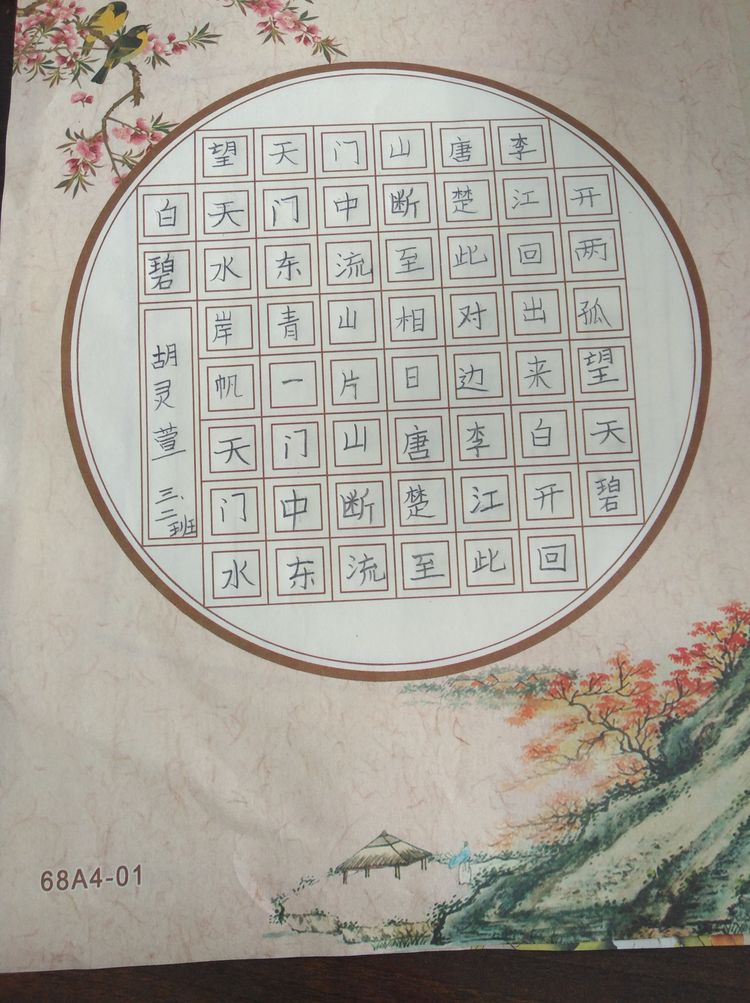 望天门山唐李
白天门中断楚江开
碧水东流至此回两
岸青山相对出孤
帆一片日边来望
天门山唐李白天
门中断楚江开碧
水东流至此回
胡灵萱
三、二班
68A4-01